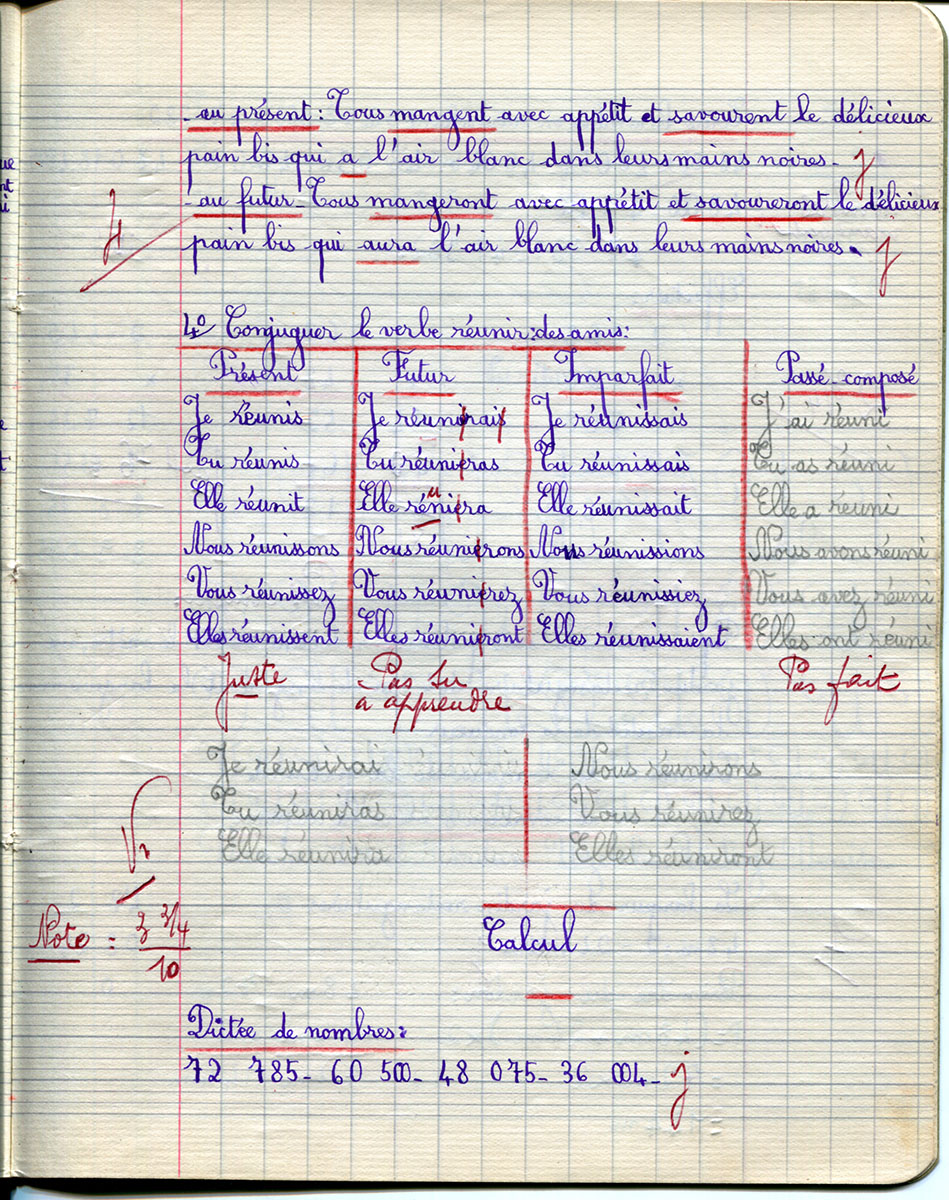 - au présent : Tous mangent avec appétit et savourent le délicieux
pain bis qui a l'air blanc dans leurs mains noires - j
- au futur - Tous mangeront avec appétit et savoureront le délicieux
pain bis qui aura l'air blanc dans leurs mains noires. j
4° Conjuguer le verbe réunir : des amis :
Présent Futur Imparfait Passé-composé
Je réunis Je réunirais Je réunissais J'ai réuni
Tu réunis Tu réuniras Tu réunissais Tu as réuni
Elle réunit Elle rénira Elle réunissait Elle a réuni
u
Nous réunissons Nous réunirons Nous réunissions Nous avons réuni
Vous réunissez Vous réunirez Vous réunissiez Vous avez réuni
Elles réunissent Elles réuniront Elles réunissaient Elles ont réuni
Juste Pas su Pas fait
à apprendre
Je réunirai Nous réunirons
Tu réuniras Vous réunirez
Elle réunira Elles réuniront
Note = 3 3/4
10
Calcul
Dictée de nombres :
72 785 - 60 500 - 48 075 - 36 004 - j